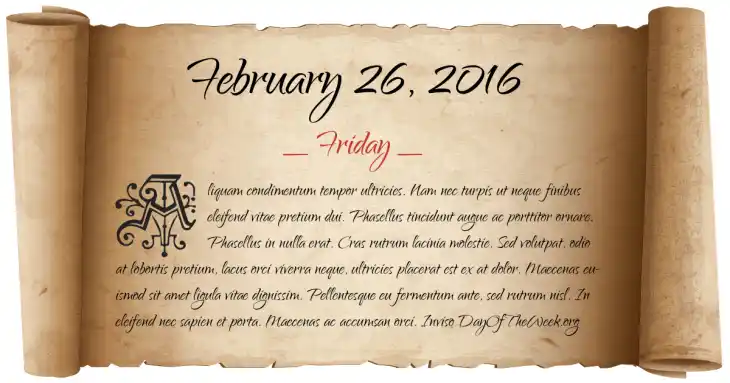 February 26, 2016
— Friday —
Aliquam condimentum tempor ultricies. Nam nec turpis ut neque finibus
eleifend vitae pretium dui. Phasellus tincidunt augue ac porttitor ornare.
Phasellus in nulla erat. Cras rutrum lacinia molestie. Sed volutpat, odio
at lobortis pretium, lacus orci viverra neque, ultricies placerat est ex at dolor. Maecenas eu-
ismod sit amet ligula vitae dignissim. Pellentesque eu fermentum ante, sed rutrum nisl. In
eleifend nec sapien et porta. Maecenas ac accumsan orci. Invisq DayOfTheWeek.org